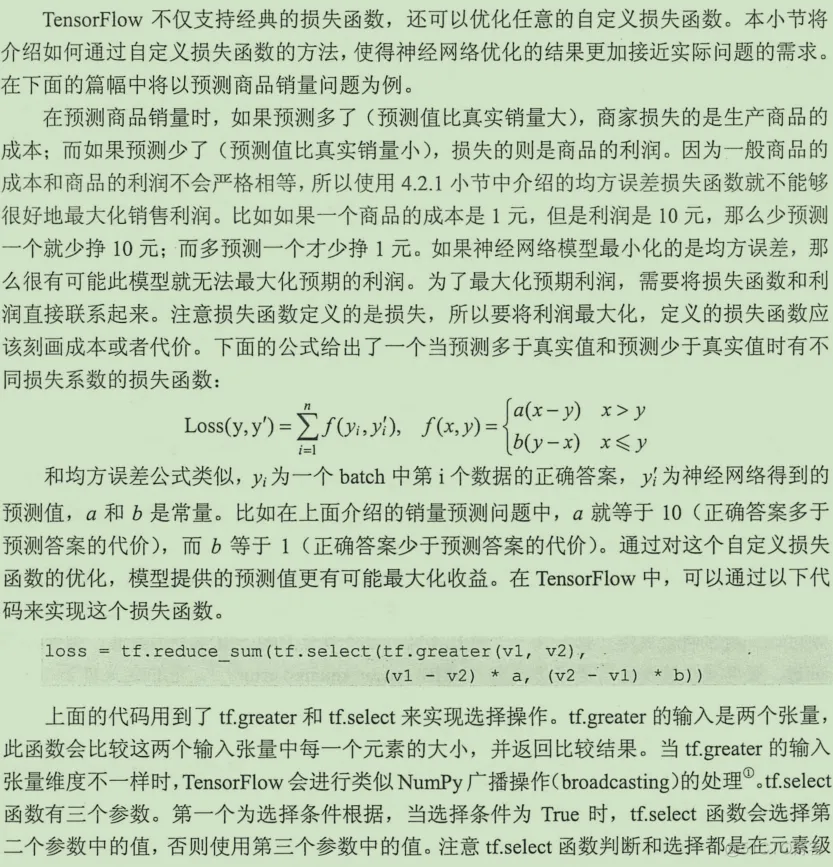 TensorFlow 不仅支持经典的损失函数，还可以优化任意的自定义损失函数。本小节将
介绍如何通过自定义损失函数的方法，使得神经网络优化的结果更加接近实际问题的需求。
在下面的篇幅中将以预测商品销量问题为例。
在预测商品销量时，如果预测多了（预测值比真实销量大），商家损失的是生产商品的
成本；而如果预测少了（预测值比真实销量小），损失的则是商品的利润。因为一般商品的
成本和商品的利润不会严格相等，所以使用 4.2.1 小节中介绍的均方误差损失函数就不能够
很好地最大化销售利润。比如如果一个商品的成本是 1 元，但是利润是 10 元，那么少预测
一个就少挣 10 元；而多预测一个才少挣 1 元。如果神经网络模型最小化的是均方误差，那
么很有可能此模型就无法最大化预期的利润。为了最大化预期利润，需要将损失函数和利
润直接联系起来。注意损失函数定义的是损失，所以要将利润最大化，定义的损失函数应
该刻画成本或者代价。下面的公式给出了一个当预测多于真实值和预测少于真实值时有不
同损失系数的损失函数：
Loss(y,y′) = ∑ⁿᵢ₌₁ f(yᵢ,y′ᵢ), f(x,y) = { a(x−y) x > y
b(y−x) x ⩽ y
和均方误差公式类似，yᵢ为一个 batch 中第 i 个数据的正确答案，y′ᵢ为神经网络得到的
预测值，a 和 b 是常量。比如在上面介绍的销量预测问题中，a 就等于 10（正确答案多于
预测答案的代价），而 b 等于 1（正确答案少于预测答案的代价）。通过对这个自定义损失
函数的优化，模型提供的预测值更有可能最大化收益。在 TensorFlow 中，可以通过以下代
码来实现这个损失函数。
loss = tf.reduce_sum(tf.select(tf.greater(v1, v2),
(v1 - v2) * a, (v2 - v1) * b))
上面的代码用到了 tf.greater 和 tf.select 来实现选择操作。tf.greater 的输入是两个张量，
此函数会比较这两个输入张量中每一个元素的大小，并返回比较结果。当 tf.greater 的输入
张量维度不一样时，TensorFlow 会进行类似 NumPy 广播操作（broadcasting）的处理①。tf.select
函数有三个参数。第一个为选择条件根据，当选择条件为 True 时，tf.select 函数会选择第
二个参数中的值，否则使用第三个参数中的值。注意 tf.select 函数判断和选择都是在元素级